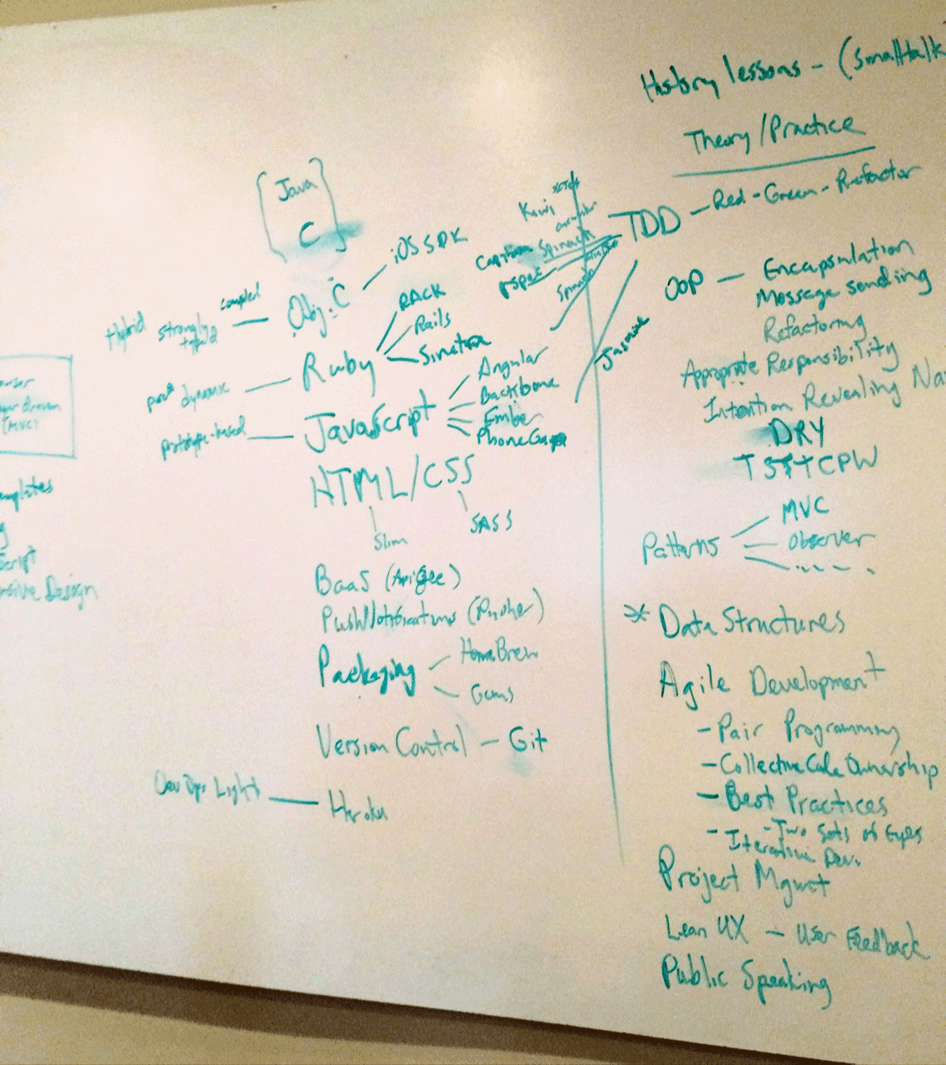 History lessons - (Smalltalk
Theory/Practice
[Java
C]
iOS SDK
Obj-C
compiled
strongly typed
Hybrid
RACK
Rails
Sinatra
Ruby
pure dynamic
Angular
Backbone
Ember
PhoneGap
JavaScript
prototype-based
HTML/CSS
Slim
SASS
BaaS (Apigee)
Push Notifications (Pusher)
Packaging
HomeBrew
Gems
Version Control - Git
Dev Ops Light — Heroku
(MVC)
Kiwi
Spinach
rspec
Jasmine
TDD - Red-Green-Refactor
OOP - Encapsulation
Message sending
Refactoring
Appropriate Responsibility
Intention Revealing
DRY
TSTTCPW
Patterns
MVC
Observer
* Data Structures
Agile Development
- Pair Programming
- Collective Code Ownership
- Best Practices
- Two Sets of Eyes
- Iterative Dev.
Project Mgmt
Lean UX - User Feedback
Public Speaking